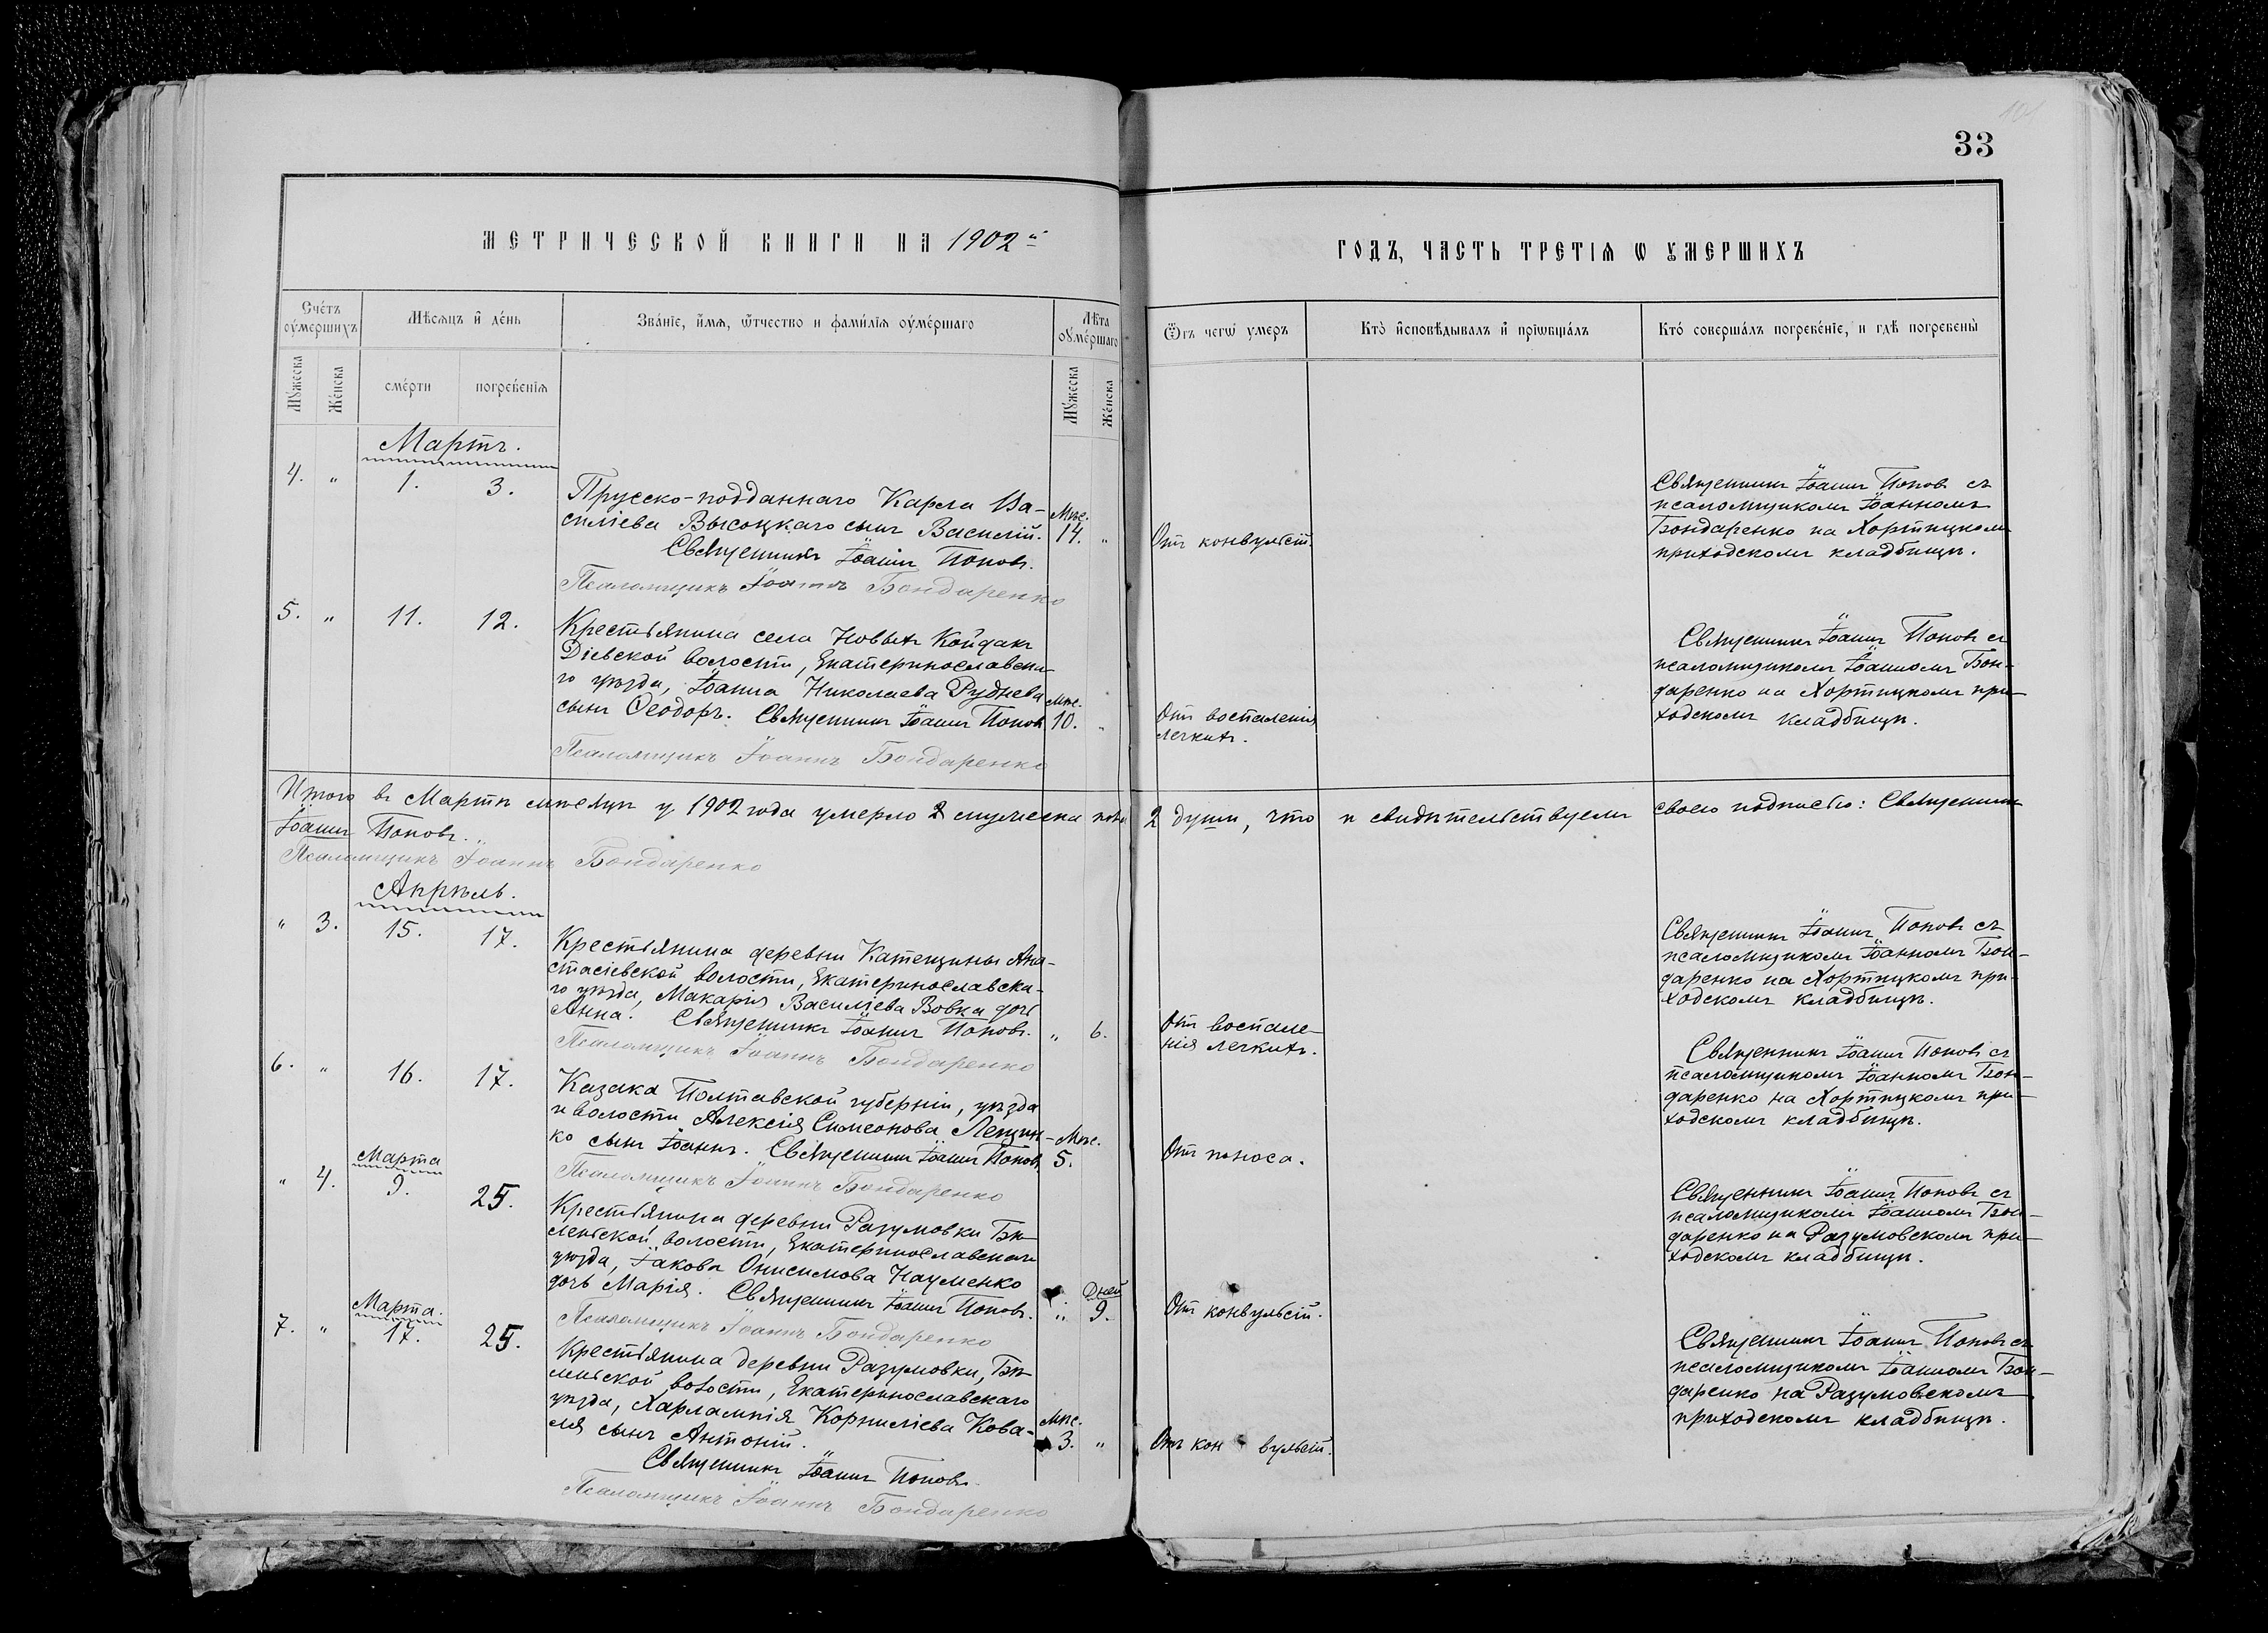 33
МЕТРИЧЕСКОЙ КНИГИ НА 1902й
ГОДЪ, ЧАСТЬ ТРЕТІѦ Ѡ УМЕРШИХЪ
Счéтъ оу҆мéршихъ
Мѣсѧцъ и҆ дéнь
Звáнїе, и҆́мѧ, ѿтчество и фамѝлїѧ оу҆мéршаго
Лѣ́та оу҆мéршаго
Ѿ чегѡ̀ умеръ
Кто̀ и҆сповѣ́дывалъ и҆ прїѡбщáлъ
Кто̀ совершáлъ погребéнїе, и гдѣ̀ погребены̀
Му́жеска
Жéнска
смéрти
погребéнїѧ
Му́жеска
Жéнска
Мартъ.
4. " 1. 3.
Прусско-подданнаго Карла Ва-
силіева Высоцкаго сынъ Василій.
Мѣс.
14. "
Священникъ Іоаннъ Поповъ.
Псаломщикъ Іоаннъ Бондаренко
Отъ конвульсій.
Священникъ Іоаннъ Поповъ съ
псаломщикомъ Іоанномъ
Бондаренко на Хортицкомъ
приходскомъ кладбищѣ.
5. " 11. 12.
Крестьянина села Новыхъ Койдакъ
Діевской волости, Екатеринославска-
го уѣзда, Іоанна Николаева Руднева
сынъ Ѳеодоръ. Священникъ Іоаннъ Поповъ
Мѣс.
10. "
Псаломщикъ Іоаннъ Бондаренко
Отъ воспаленія
легкихъ.
Священникъ Іоаннъ Поповъ съ
псаломщикомъ Іоанномъ Бон-
даренко на Хортицкомъ при-
ходскомъ кладбищѣ.
Итого въ Мартѣ мѣсяцѣ у 1902 года умерло 2 мужеска пола 2 души, что и свидѣтельствуемъ своею подписью: Священникъ
Іоаннъ Поповъ.
Псаломщикъ Іоаннъ Бондаренко
Апрѣль.
" 3. 15. 17.
Крестьянина деревни Катещины Ана-
стасіевской волости, Екатеринославска-
го уѣзда, Макарія Василіева Вовка дочь
Анна. Священникъ Іоаннъ Поповъ.
" 6.
Псаломщикъ Іоаннъ Бондаренко
Отъ воспале-
нія легкихъ.
Священникъ Іоаннъ Поповъ съ
псаломщикомъ Іоанномъ Бон-
даренко на Хортицкомъ при-
ходскомъ кладбищѣ.
6. " 16. 17.
Казака Полтавской губерніи, уѣзда
и волости Алексія Симеонова Лещин-
ко сынъ Іоаннъ. Священникъ Іоаннъ Поповъ
Мѣс.
5.
Псаломщикъ Іоаннъ Бондаренко
Отъ поноса.
Священникъ Іоаннъ Поповъ съ
псаломщикомъ Іоанномъ Бон-
даренко на Хортицкомъ при-
ходскомъ кладбищѣ.
Марта
" 4. 9. 25.
Крестьянина деревни Разумовки Бѣ-
леньской волости, Екатеринославскаго
уѣзда, Іакова Онисимова Науменко
дочь Марія. Священникъ Іоаннъ Поповъ.
Дней
" 9.
Псаломщикъ Іоаннъ Бондаренко
Отъ конвульсій.
Священникъ Іоаннъ Поповъ съ
псаломщикомъ Іоанномъ Бон-
даренко на Разумовскомъ при-
ходскомъ кладбищѣ.
Марта.
7. " 17. 25.
Крестьянина деревни Разумовки, Бѣ-
леньской волости, Екатеринославскаго
уѣзда, Харлампія Корниліева Кова-
ля сынъ Антоній.
Мѣс.
3. "
Священникъ Іоаннъ Поповъ.
Псаломщикъ Іоаннъ Бондаренко
Отъ кон вульсій.
Священникъ Іоаннъ Поповъ съ
псаломщикомъ Іоанномъ Бон-
даренко на Разумовскомъ
приходскомъ кладбищѣ.